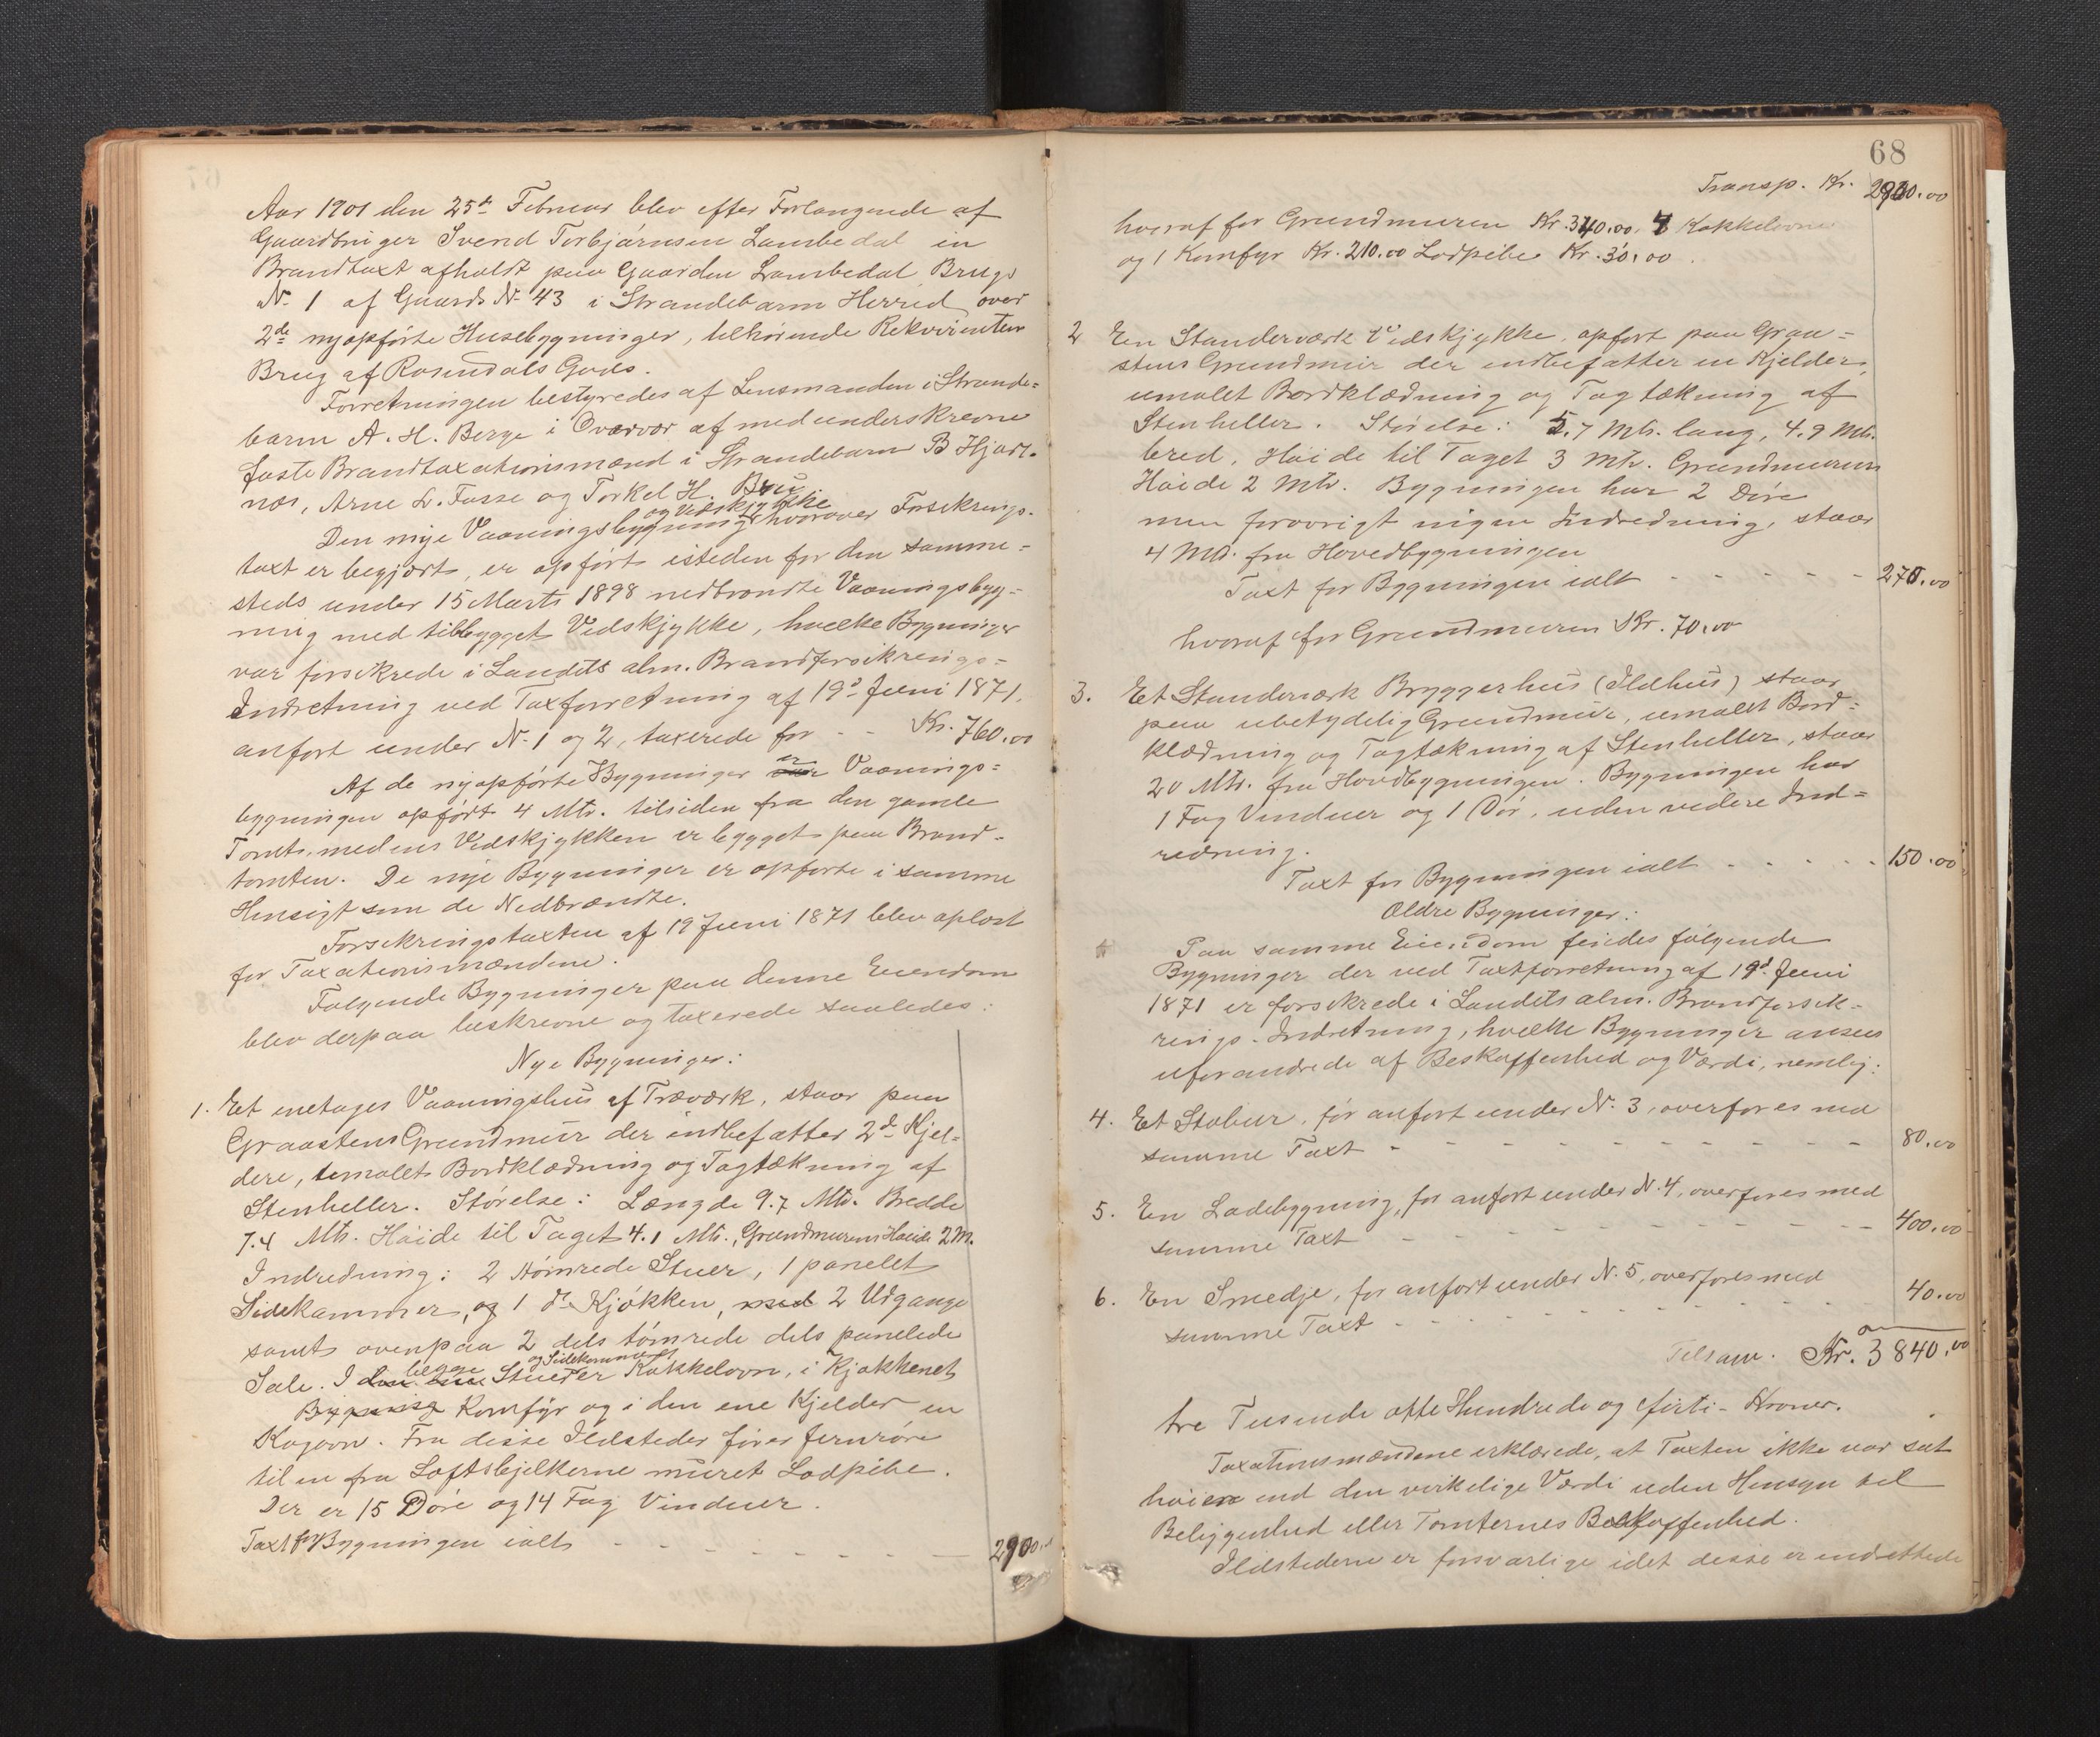 Aar 1901 den 25de Februar blev efter Forlangende af
Gaardbruger Svend Torbjørnsen Lambedal en
Brandtaxt afholdt paa Gaarden Lambedal Brugs
No 1 af Gaards No 43 i Strandebarm Herred over
2de nyopførte Husebygninger, tilhørende Rekvirentens
Brug af Rosendals Gods.
Forretningen bestyredes af Lensmanden i Strande-
barm A. H. Berge i Overvær af med underskrevne
faste Brandtaxationsmænd i Strandebarm B Hjart-
nes, Arne L. Fosse og Torkel H. Bru
og Vedskjykke
Den nye Vaaningsbygning hvorover Forsikrings-
taxt er begjært, er opført isteden for den samme-
steds under 15 Marts 1898 nedbrændte Vaaningsbyg-
ning med tilbygget Vedskjykke, hvilke Bygninger
var forsikrede i Landets alm. Brandforsikrings-
Indretning ved Taxforretning af 19de Juni 1871.
anført under No 1 og 2, taxerede for - - Kr. 760.00
Af de nyopførte Bygninger er Vaanings-
bygningen opført 4 Mtr. tilsiden fra den gamle
Tomt, medens Vedskjykken er bygget paa Brand-
tomten. De nye Bygninger er opførte i samme
Hensigt som de Nedbrændte.
Forsikringstaxten af 19 Juni 1871 blev oplæst
for Taxationsmændene.
Følgende Bygninger paa denne Eiendom
blev derpaa beskrevne og taxerede saaledes:
Nye Bygninger:
1. Et enetages Vaaningshus af Træværk, staar paa
Graastens Grundmur der indbefatter 2de Kjel-
dere, umalet Bordklædning og Tagtækning af
Stenheller. Størelse: Længde 9.7 Mtr. Bredde
7.4 Mtr. Høide til Taget 4.1 Mtr., Grundmurens Høide 2 M.
Indredning: 2 tømrede Stuer, 1 panelet
Sidekammer, og 1 do Kjøkken, med 2 Udgange
samt ovenpaa 2 dels tømrede dels panelede
begge og Sidekammeret
Sale. I den ene Stuer er Kakkelovn, i Kjøkkenet
Bygning Komfyr og i den ene Kjelder en
Kogovn. Fra disse Ildsteder fører Jernrøre
til en fra Loftsbjelkerne muret Lodpibe.
Der er 15 Døre og 14 Fag Vinduer.
Taxt for Bygningen ialt - - - - - - - 2900.00
68
Transp. Kr. 2900.00
hvoraf for Grundmuren Kr. 340.00. 4 Kakkelovne
og 1 Komfyr Kr. 210.00 Lodpibe Kr. 30.00.
2 En Standerværk Vedskjykke, opført paa Graa-
stens Grundmur der indbefatter en Kjelder,
umalet Bordklædning og Tagtækning af
Stenheller. Størelse: 5.7 Mtr. lang, 4.9 Mtr.
bred, Høide til Taget 3 Mtr. Grundmurens
Høide 2 Mtr. Bygningen har 2 Døre
men forøvrigt ingen Indredning, staar
4 Mtr. fra Hovedbygningen
Taxt for Bygningen ialt - - - - - 270.00
hvoraf for Grundmuren Kr. 70.00
3. Et Standerværk Bryggerhus (Ildhus) staar
paa ubetydelig Grundmur, umalet Bord-
klædning og Tagtækning af Stenheller, staar
20 Mtr. fra Hovedbygningen. Bygningen har
1 Fag Vinduer og 1 Dør, uden videre Ind-
redning.
Taxt for Bygningen ialt - - - - - 150.00
Ældre Bygninger:
Paa samme Eiendom findes følgende
Bygninger der ved Taxtforretning af 19de Juni
1871 er forsikrede i Landets alm. Brandforsik-
rings-Indretning, hvilke Bygninger ansees
uforandrede af Beskaffenhed og Værdi, nemlig:
4. Et Stabur, før anført under No. 3, overføres med
samme Taxt - - - - - - - - - 80.00
5. En Ladebygning, før anført under No. 4, overføres med
samme Taxt - - - - - - - - - 400.00
6. En Smedje, før anført under No. 5, overføres med
samme Taxt - - - - - - - - - 40.00
Tilsam. Kr. 3840.00
tre Tusende otte Hundrede og firti - Kroner.
Taxationsmændene erklærede, at Taxten ikke var sat
høiere end den virkelige Værdi uden Hensyn til
Beliggenhed eller Tomternes Beskaffenhed.
Ildstederne er forsvarlige idet disse er indrettede